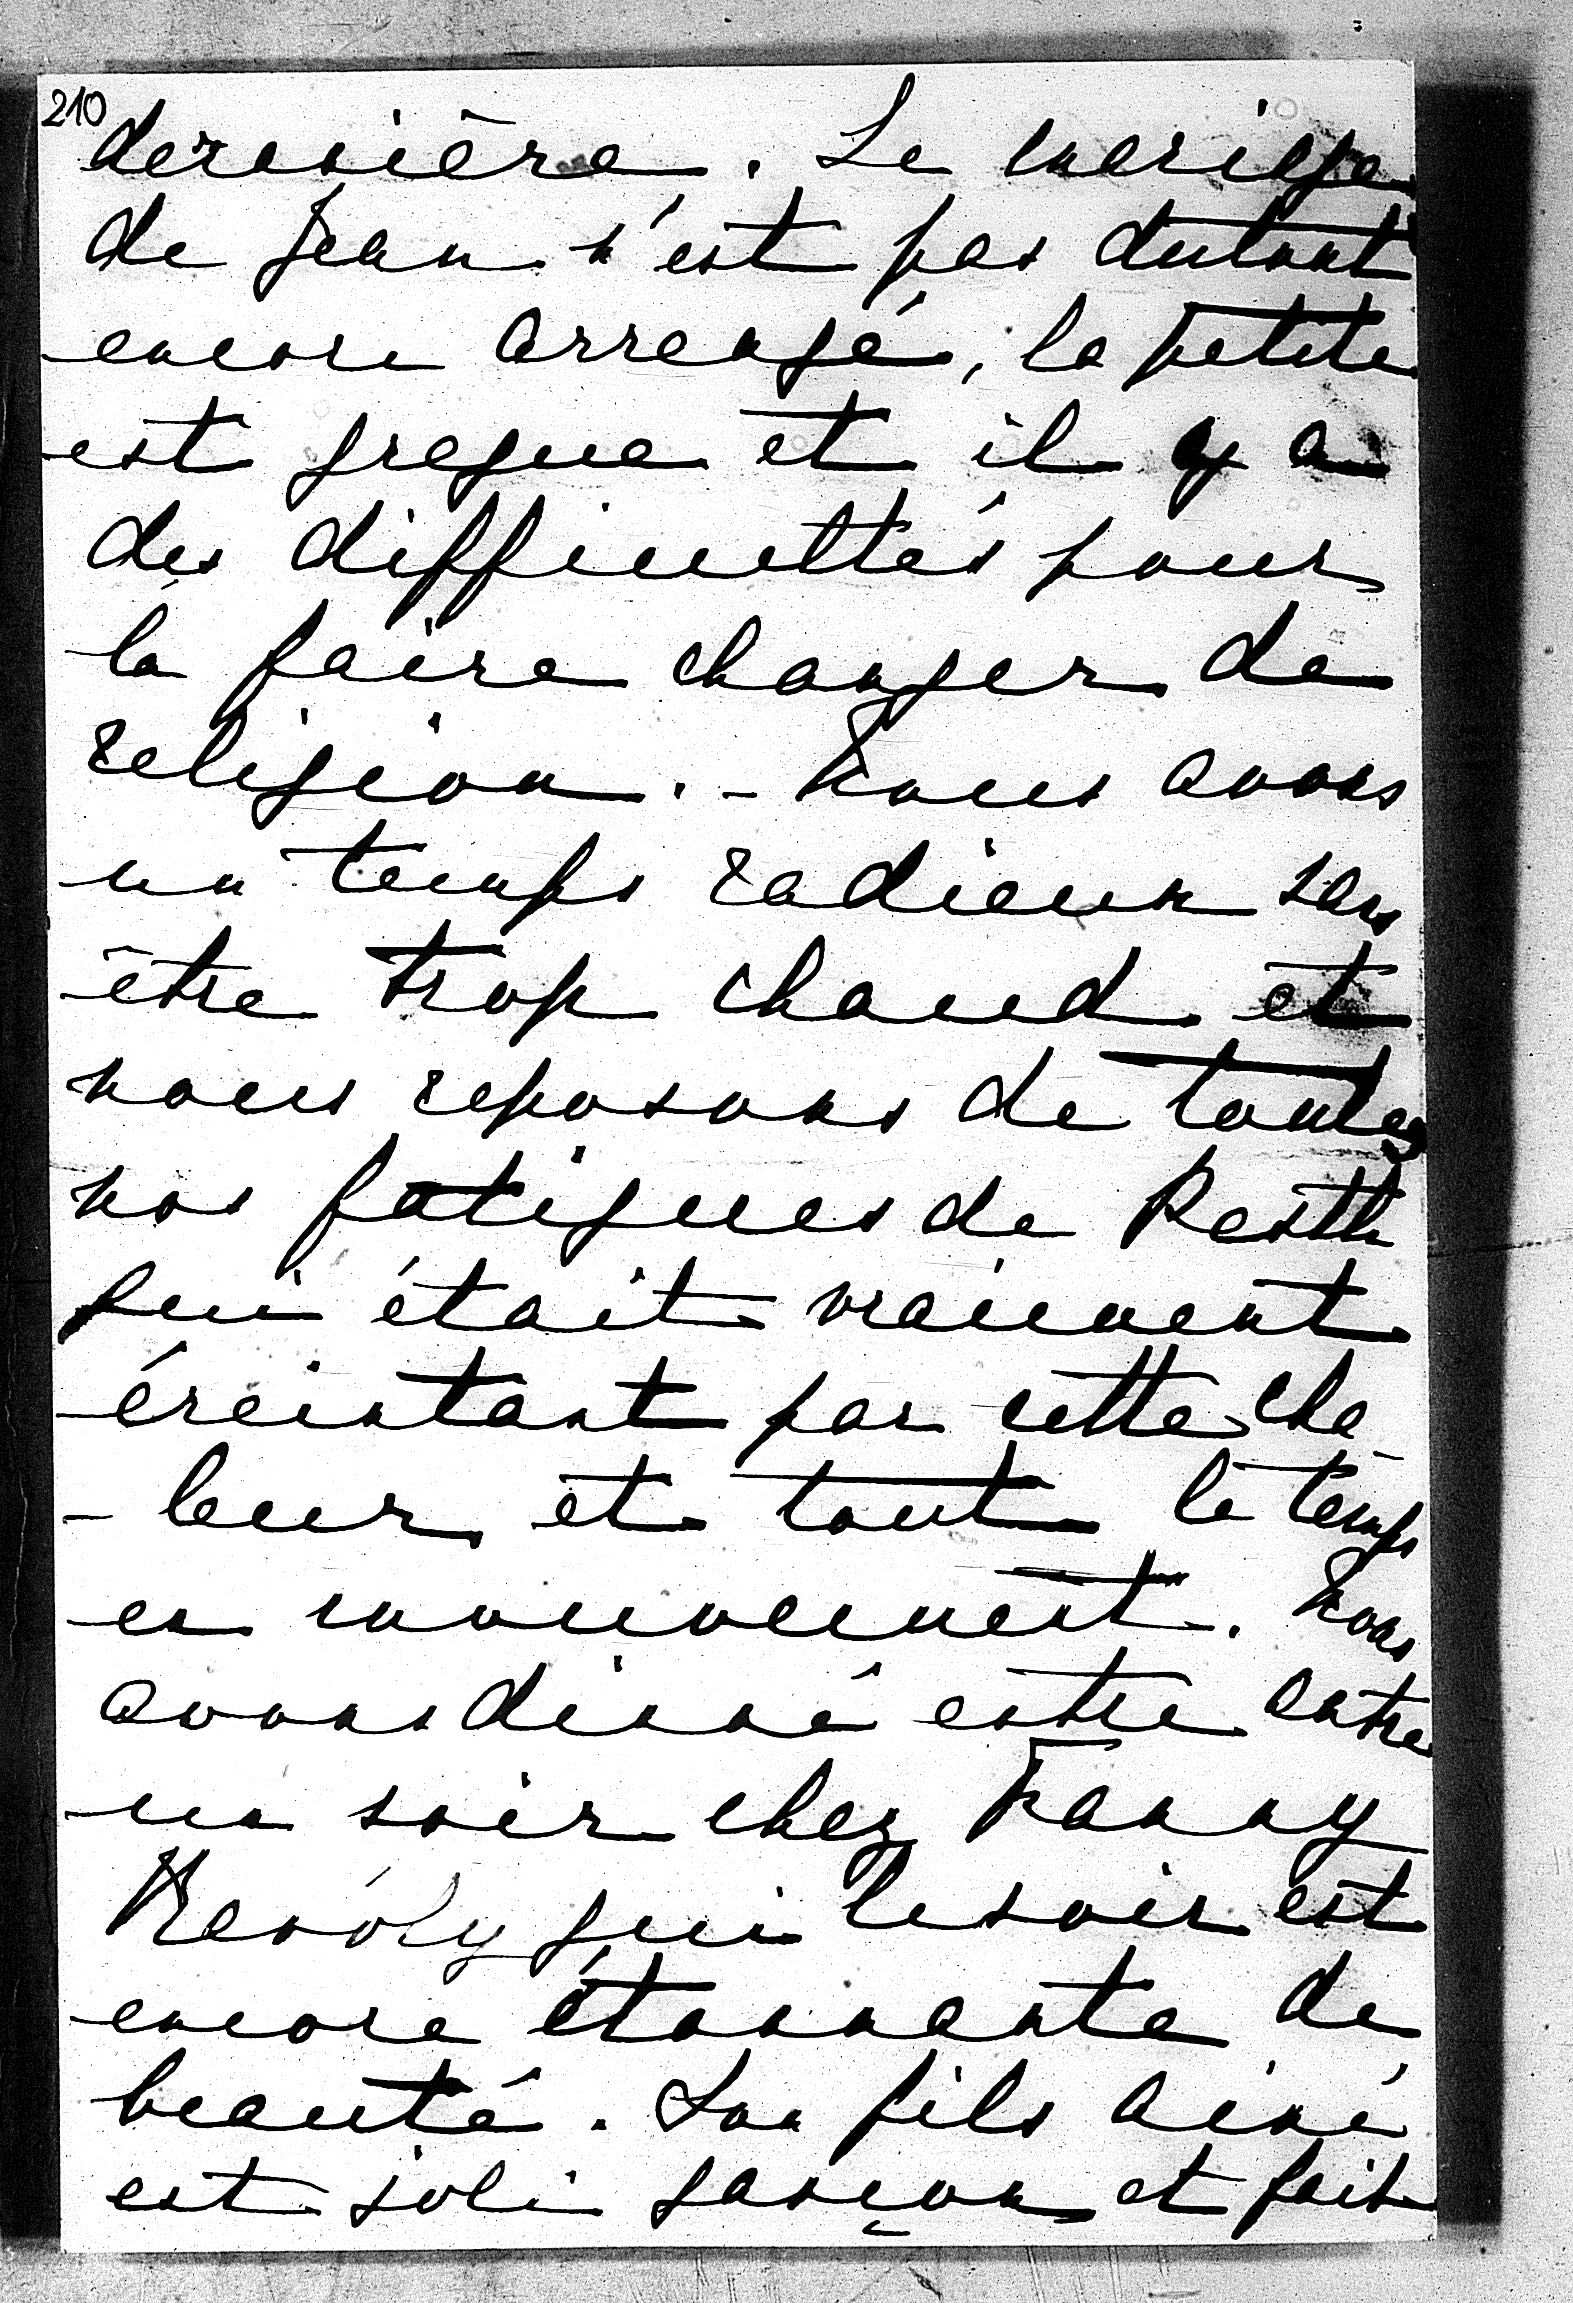 210
dernière. Le mariage
de Jean n'est pas dutout
encore arrengé, la petite
est greque et il y a
des difficultés pour
la faire changer de
religion. - Nous avons
un temps radieux sans
être trop chaud et
nous reposons de toutes
nos fatigues de Pesth
qui était vraiment
éreintant par cette cha-
-leur et tout le temps
en mouvement. Nous
avons dinné entre autre
un soir chez Fanny
qui le soir est
encore étonnante de
beauté. Son fils ainé
est joli garçon et fait